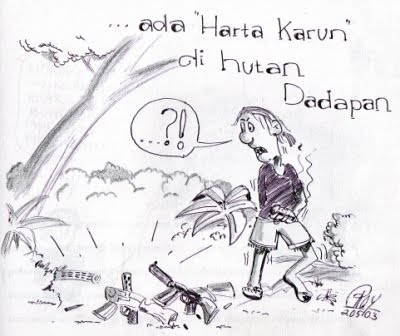 ... ada "Harta Karun"
di hutan
Dadapan
....?!
205103